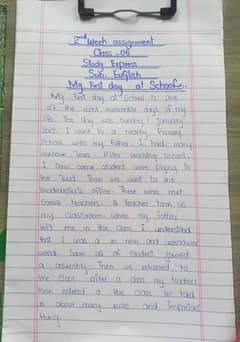 2nd Week assignment
Class - 06
Study Express
Sub: English
My First day at School:-
My first day at School is one
off the most memorable days of my
life. The day was Sunday 1 January
2015. I went to a nearby Primary
School with my father. I had many
unknown fears. After reaching school.
I saw some student were playing in
the field. Then we went to the
headmaster's office. There were met
some teachers. A teacher took in
my classroom. When my father
left me in the class I understood
that I was a in new and unknown
world. Soon all of student joined
a assembly. Then we returned to
the class after a end my teachers
took entered the class. He told
us about many rules and important
thing.